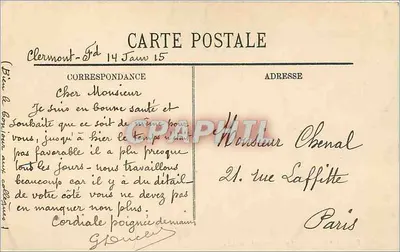 CARTE POSTALE
Clermont-Fd 14 Janv 15
CORRESPONDANCE
ADRESSE
Cher Monsieur
Je suis en bonne santé et
souhaite que ce soit de même pour
vous, jusqu'à hier le temps n'était
pas favorable il a plu presque
tous les jours - nous travaillons
beaucoup car il y a du détail
de votre côté vous ne devez pas
en manquer non plus.
Cordiale poignée de main
Monsieur Chenal
21. rue Laffitte
Paris
(Bien le bonjour aux collègues)
CPAPHIL